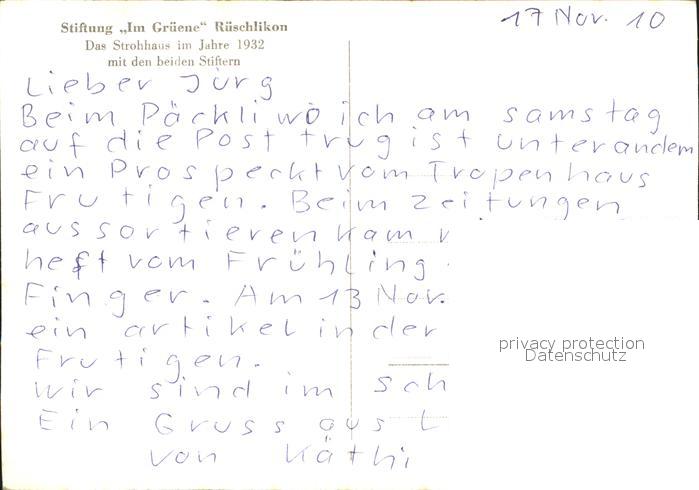 Stiftung „Im Grüene“ Rüschlikon
Das Strohhaus im Jahre 1932
mit den beiden Stiftern
17 Nov. 10
Lieber Jürg
Beim Päckli wo ich am samstag
auf die Post trug ist unterandem
ein Prospeckt vom Tropenhaus
Frutigen. Beim zeitungen
aussortieren kam
heft vom Frühling
Finger. Am 13 Nov.
ein artikel in der
Frutigen.
wir sind im
Ein Gruss aus
von Käthi
privacy protection
Datenschutz